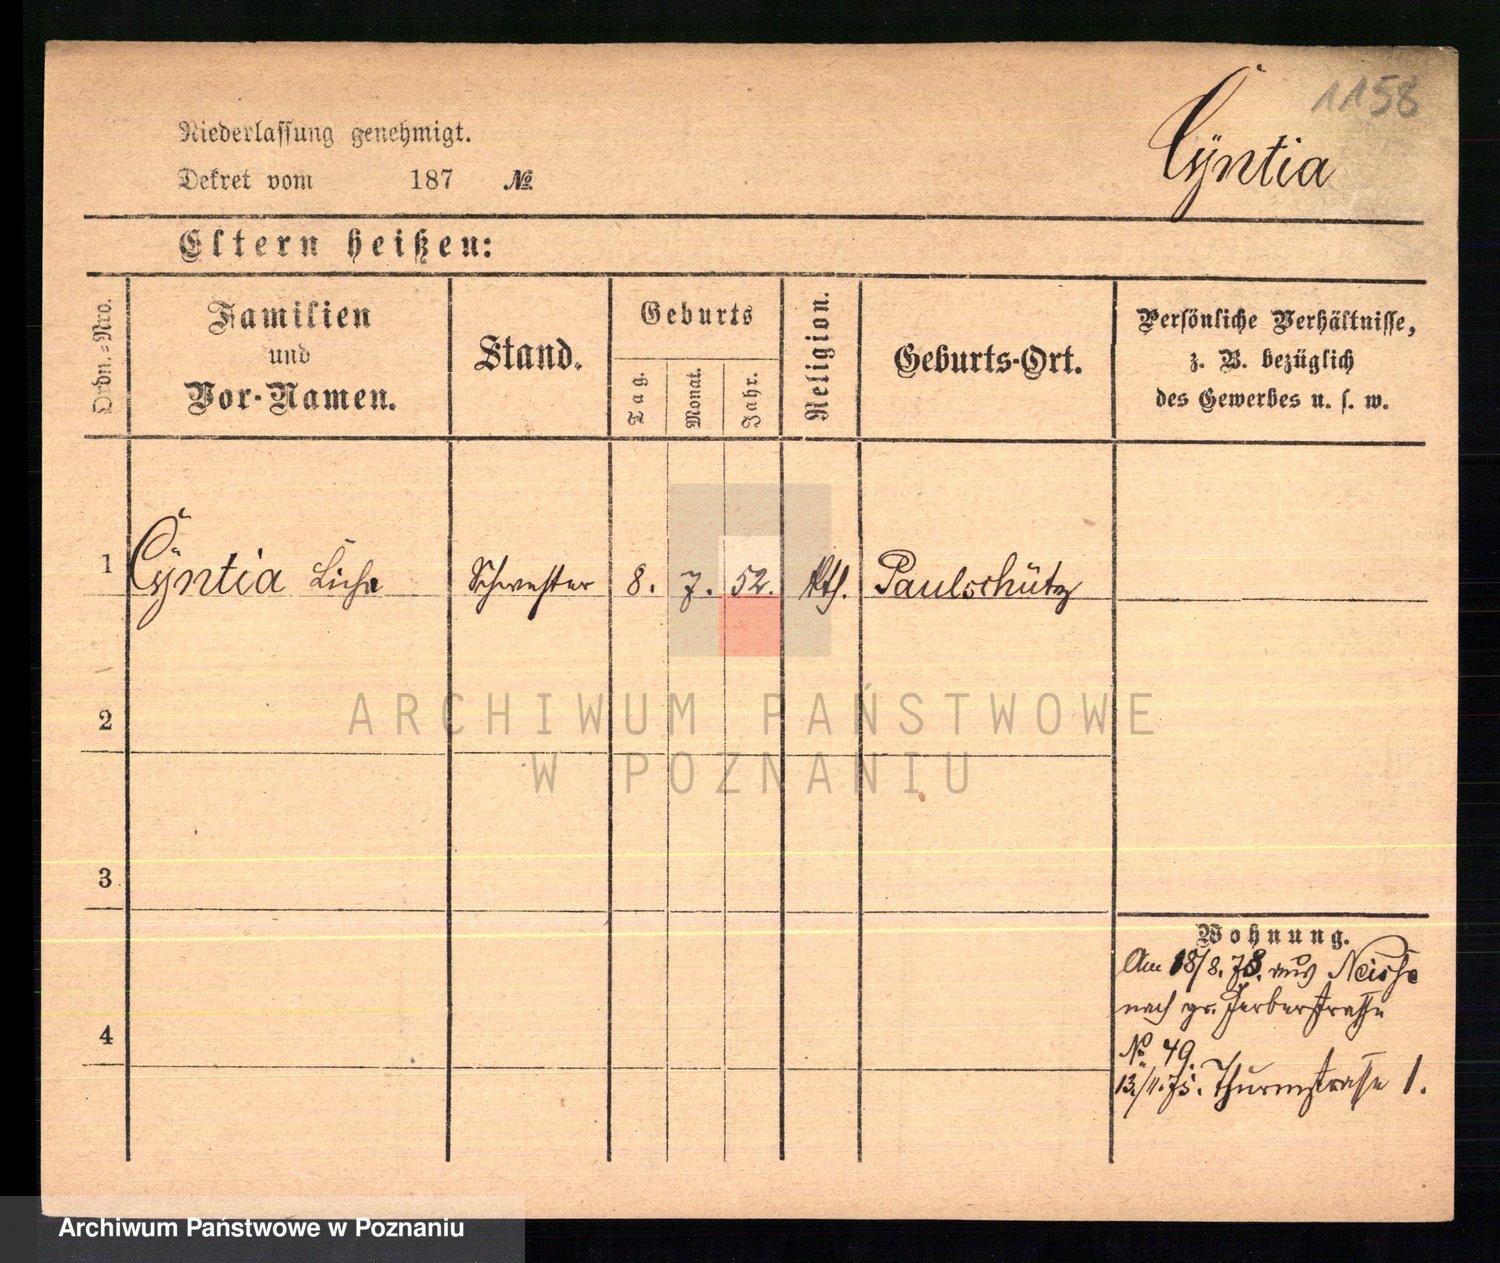 1158
Cÿntia
Niederlassung genehmigt.
Dekret vom 187 №
Eltern heißen:
Ordn.-Nro.
Familien
und
Vor-Namen.
Stand.
Geburts
Tag.
Monat.
Jahr.
Religion.
Geburts-Ort.
Persönliche Verhältnisse,
z. B. bezüglich
des Gewerbes u. s. w.
1 Cÿntia Schwester 8. 7. 52. Kth. Paulschütz
2
3
4
Wohnung.
Am 18/8. 73. aus Neisse
nach gr. Gerberstrasse
No 49.
13./11.75. Thurmstrasse 1.
ARCHIWUM PAŃSTWOWE
W POZNANIU
Archiwum Państwowe w Poznaniu